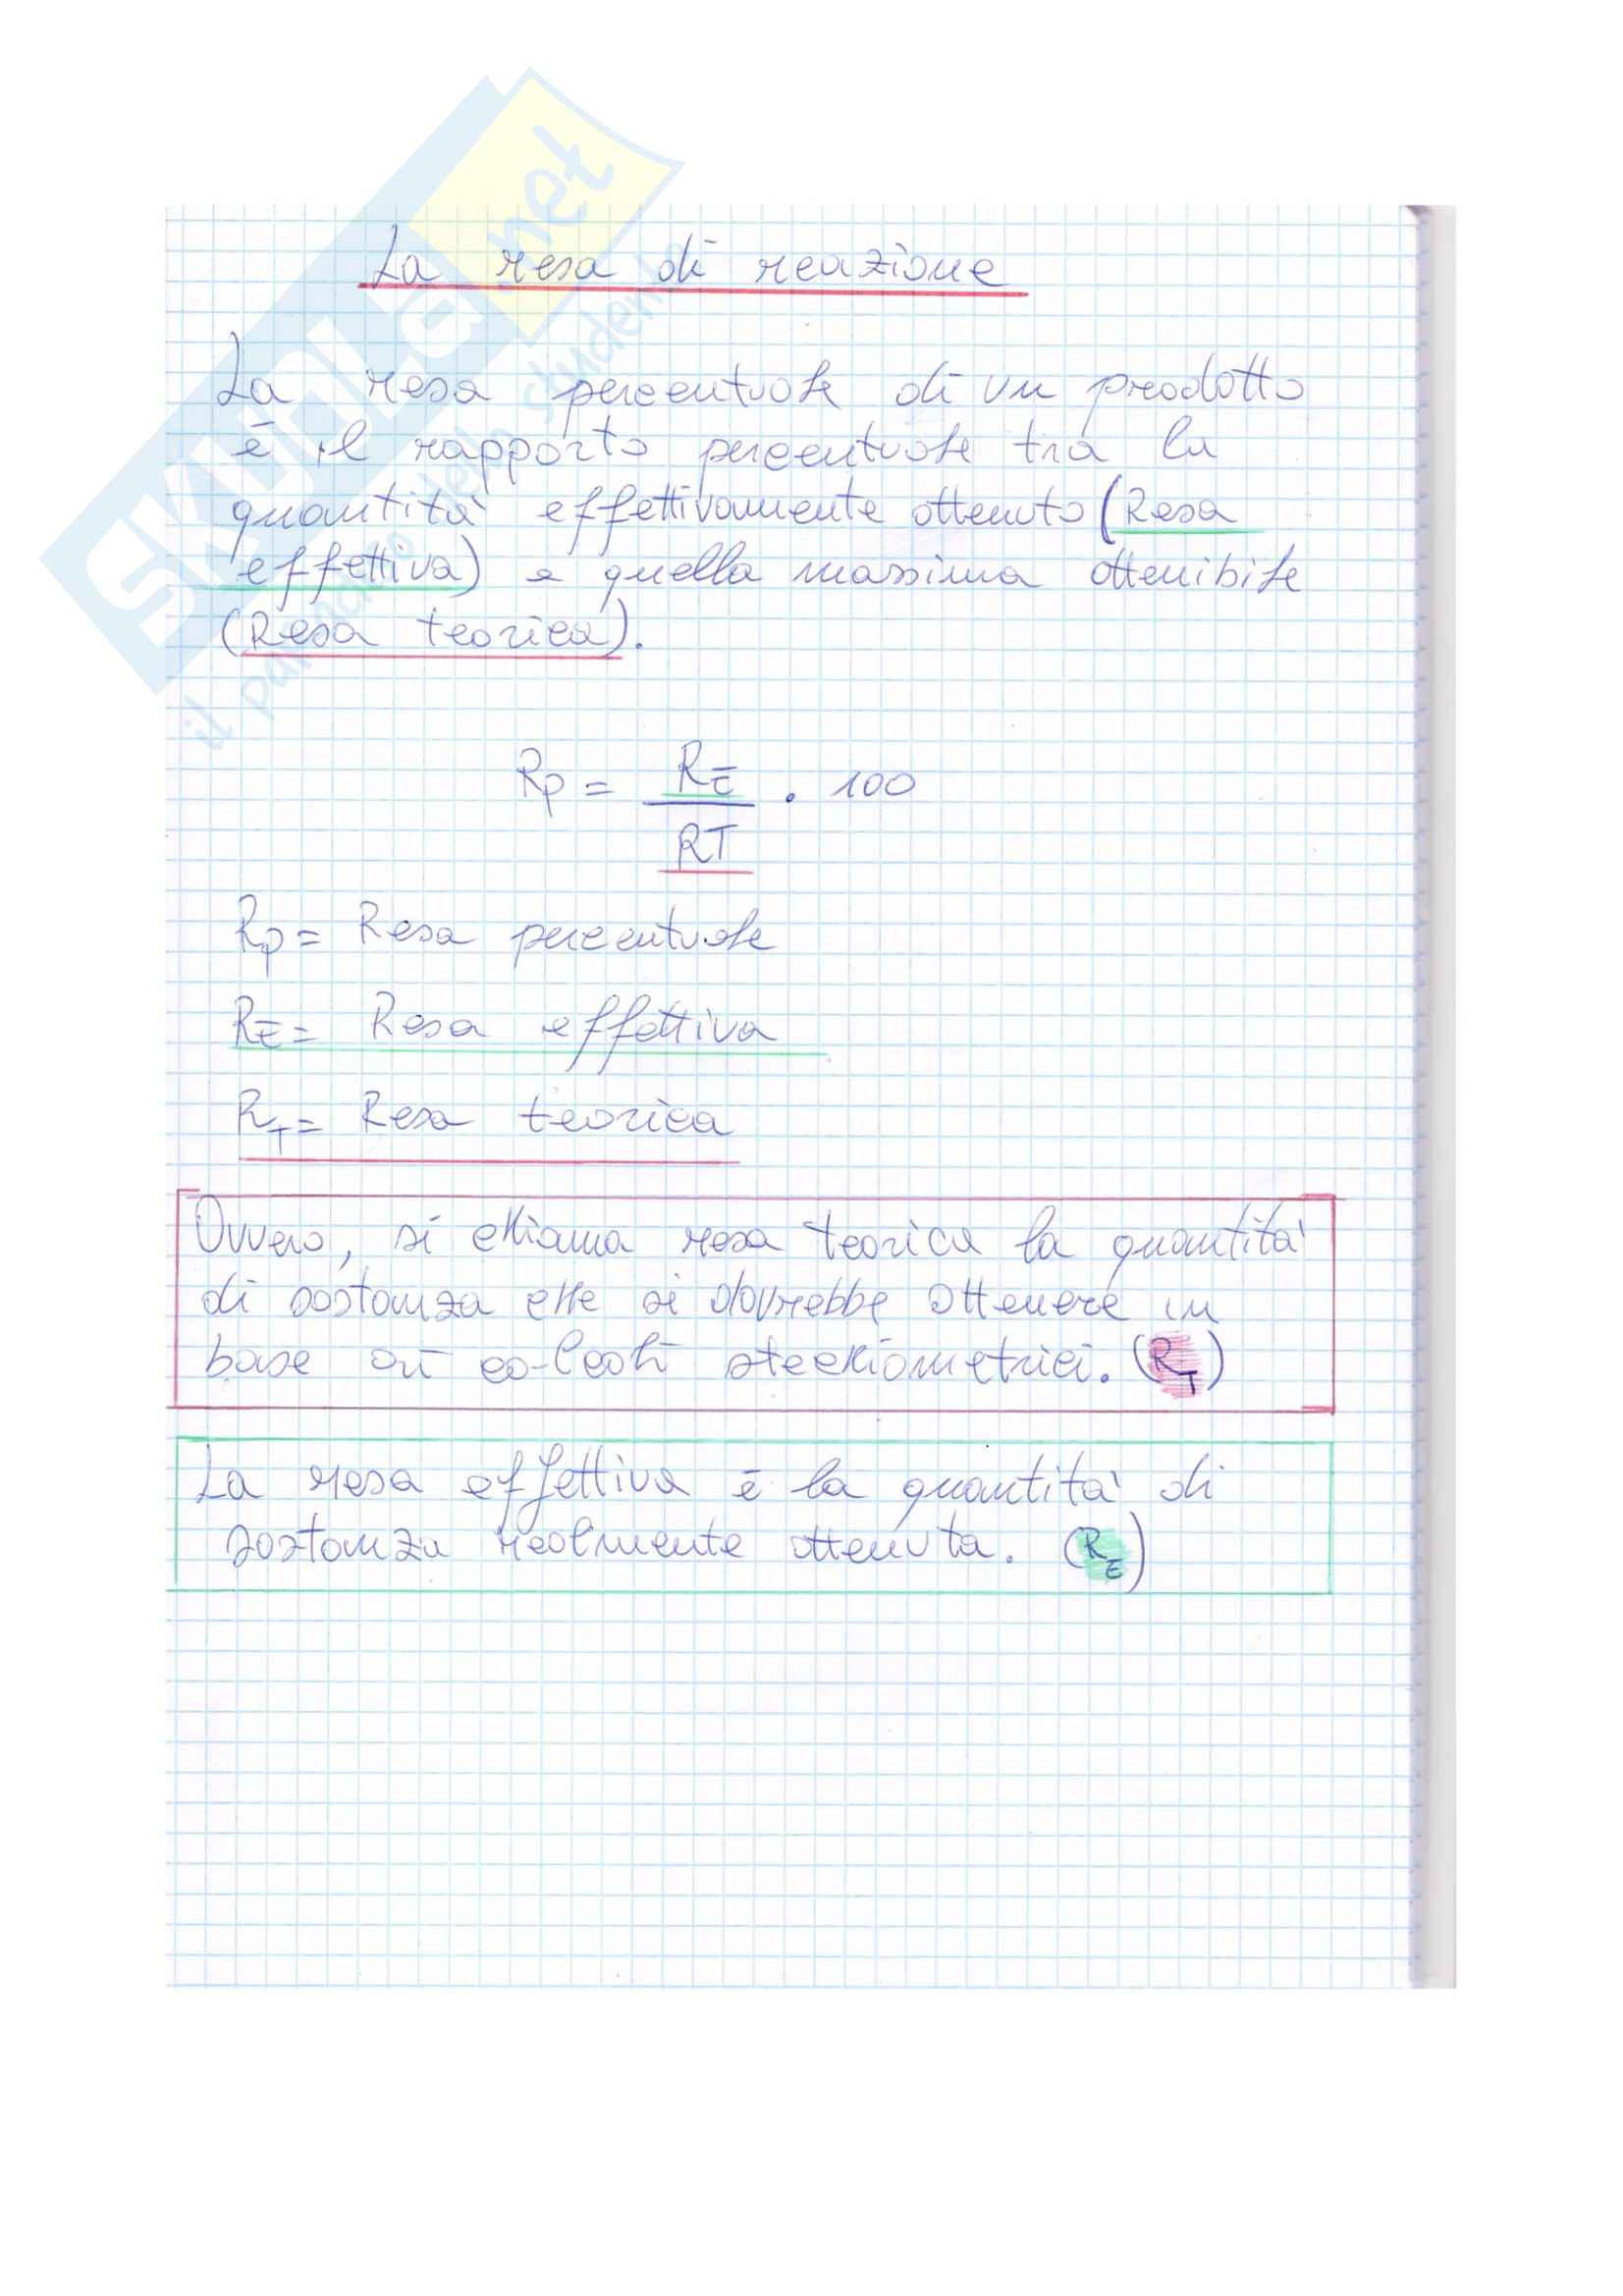 SKUOLA.net
il paradiso dello studente
La resa di reazione
La resa percentuale di un prodotto
è il rapporto percentuale tra la
quantità effettivamente ottenuto (Resa
effettiva) e quella massima ottenibile
(Resa teorica).
Rp = RE / RT . 100
Rp = Resa percentuale
RE = Resa effettiva
RT = Resa teorica
Ovvero, si chiama resa teorica la quantità
di sostanza che si dovrebbe ottenere in
base ai ca-lcoli stechiometrici. (RT)
La resa effettiva è la quantità di
sostanza realmente ottenuta. (RE)